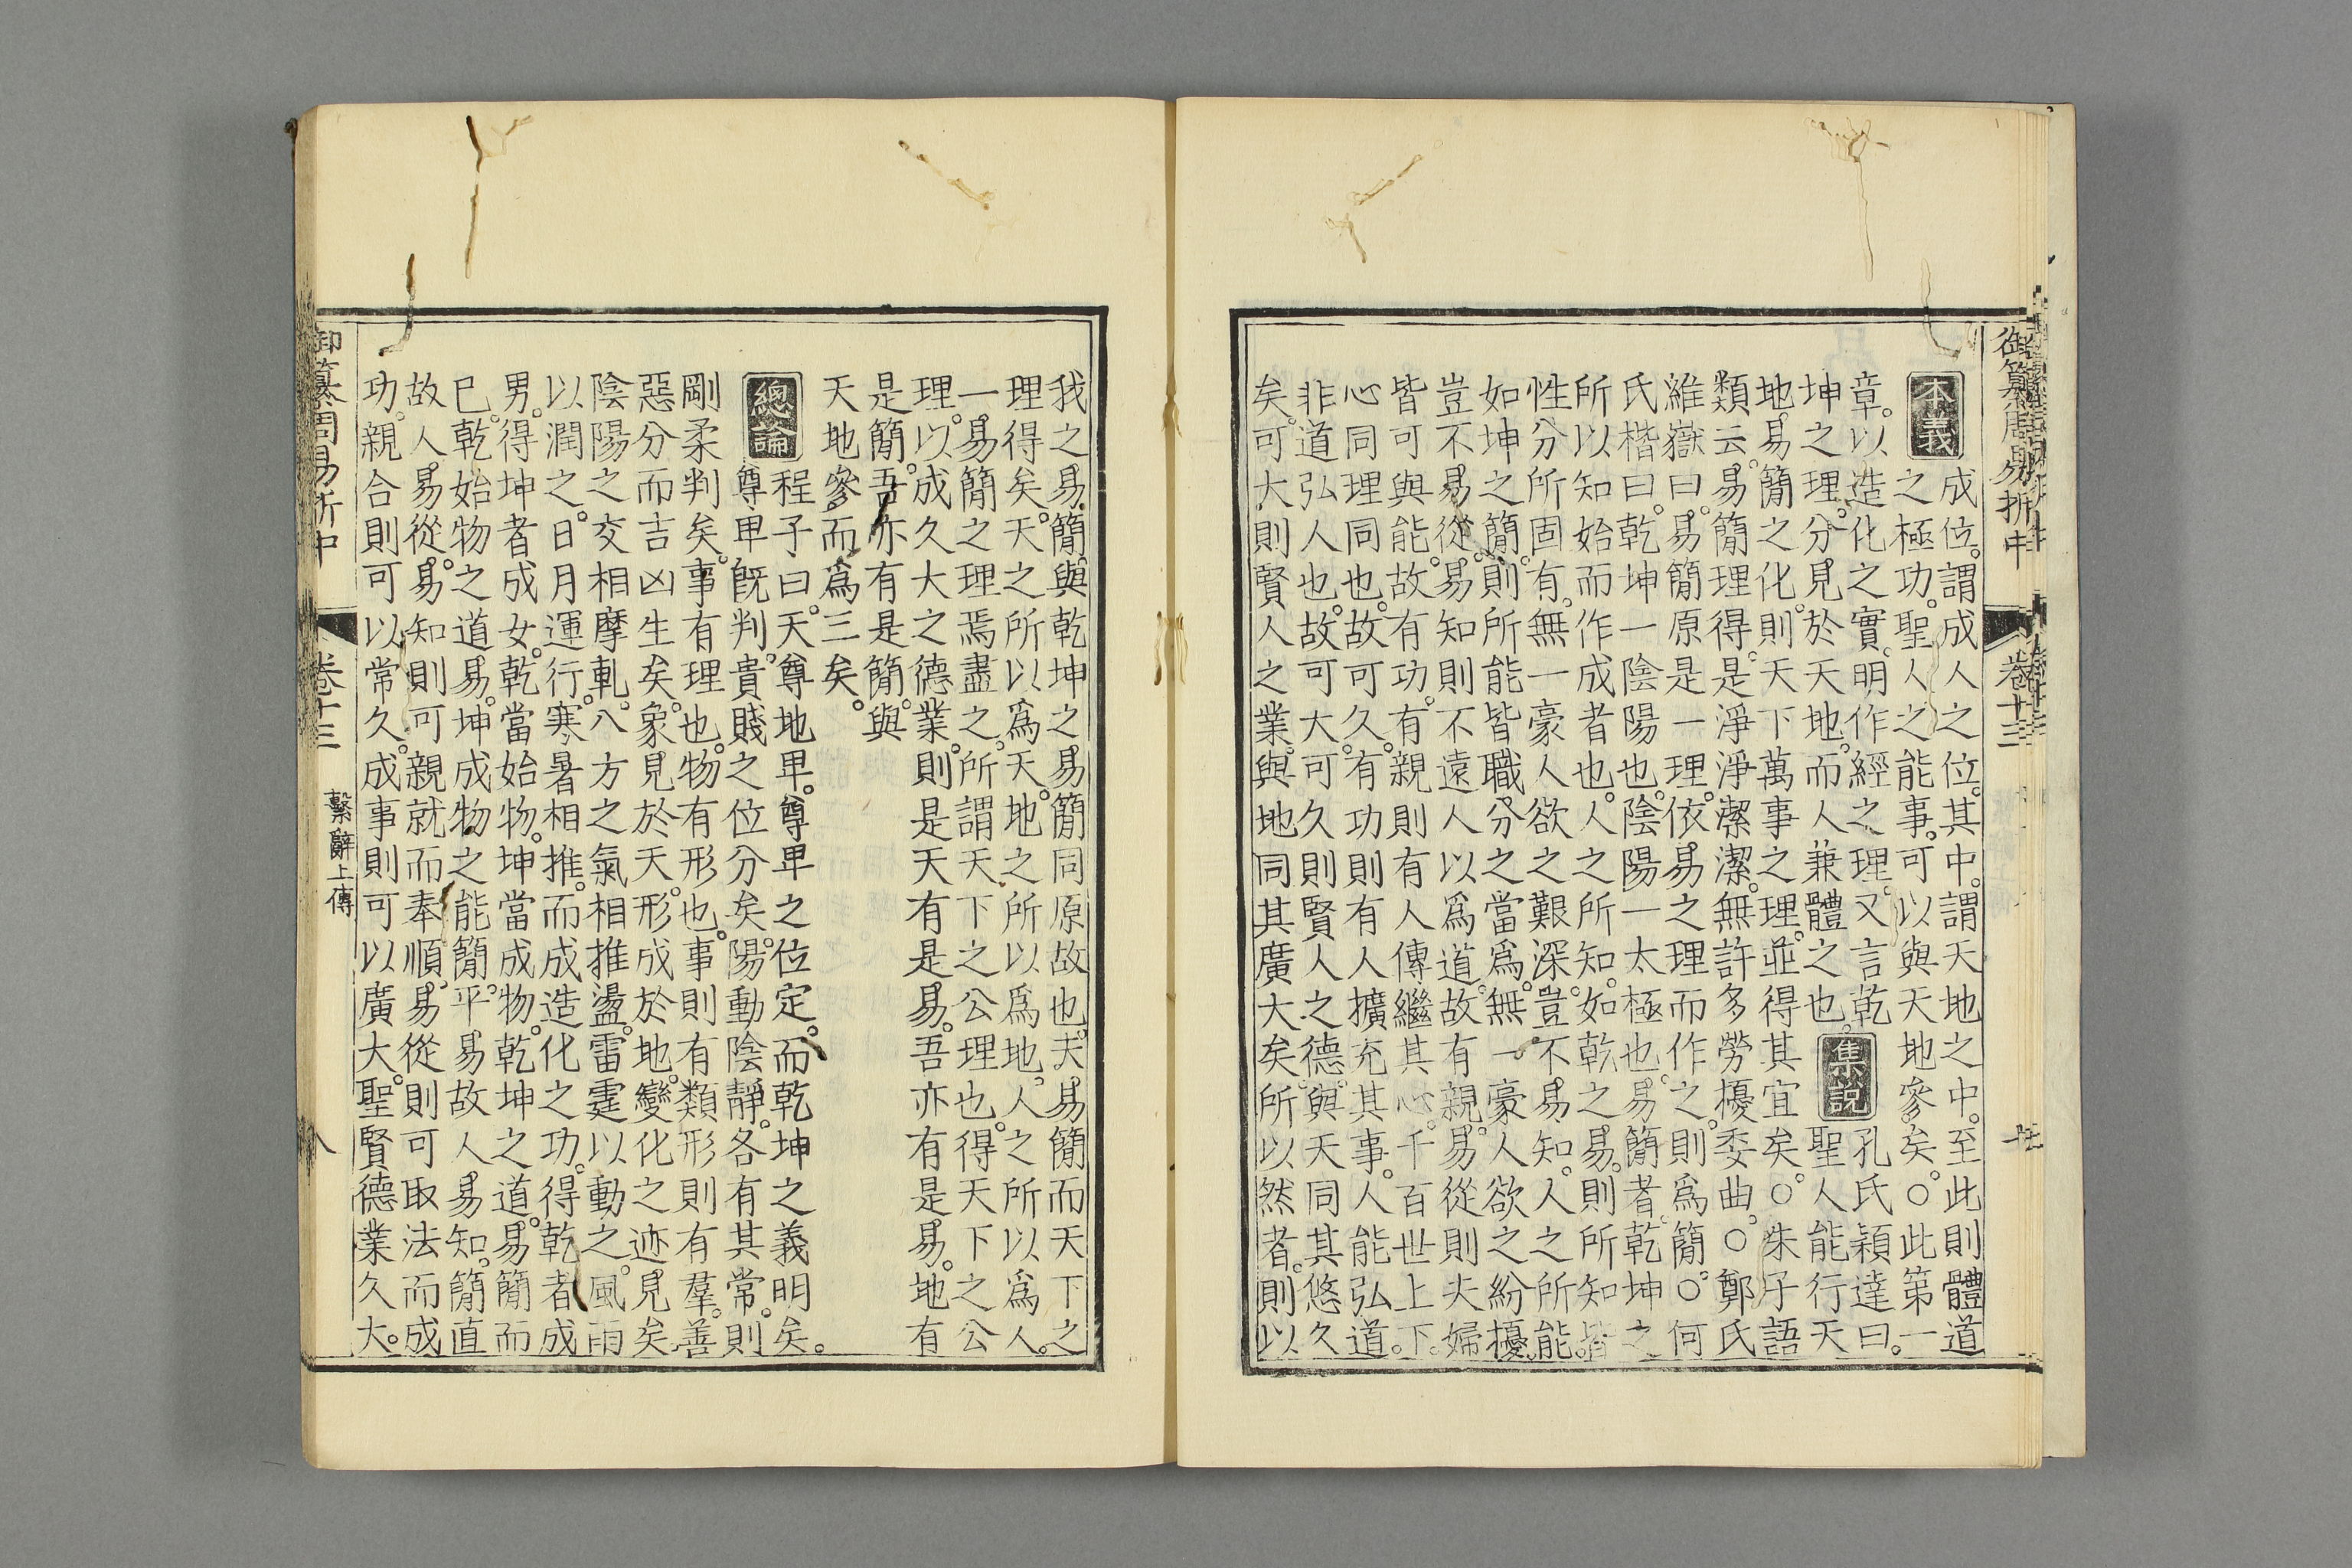 御纂周易折中
卷十三
本義
成位。謂成人之位。其中。謂天地之中。至此則體道
之極功。聖人之能事。可以與天地參矣。○此第一
章。以造化之實。明作經之理。又言乾
坤之理。分見於天地。而人兼體之也。
集説
孔氏穎達曰。
聖人能行天
地。易簡之化。則天下萬事之理。並得其宜矣。○朱子語
類云。易簡理得。是淨淨潔潔。無許多勞擾委曲。○鄭氏
維嶽曰。易簡原是一理。依易之理而作之。則爲簡。○何
氏楷曰。乾坤一陰陽也。陰陽一太極也。易簡者。乾坤之
所以知始而作成者也。人之所知。如乾之易。則所知皆
性分所固有。無一豪人欲之艱深。豈不易知。人之所能。
如坤之簡。則所能皆職分之當爲。無一豪人欲之紛擾。
豈不易從。易知則不遠人以爲道。故有親。易從則夫婦
皆可與能。故有功。有親則有人傳繼其心。千百世上下。
心同理同也。故可久。有功則有人擴充其事。人能弘道。
非道弘人也。故可大。可久則賢人之德。與天同其悠久
矣。可大則賢人之業。與地同其廣大矣。所以然者。則以
我之易簡。與乾坤之易簡同原故也。夫易簡而天下之
理得矣。天之所以爲天。地之所以爲地。人之所以爲人。
一易簡之理焉盡之。所謂天下之公理也。得天下之公
理。以成久大之德業。則是天有是易。吾亦有是易。地有
是簡。吾亦有是簡。與
天地參而爲三矣。
總論
程子曰。天尊地卑。尊卑之位定。而乾坤之義明矣。
尊卑旣判。貴賤之位分矣。陽動陰靜。各有其常。則
剛柔判矣。事有理也。物有形也。事則有類。形則有羣。善
惡分而吉凶生矣。象見於天。形成於地。變化之迹見矣。
陰陽之交相摩軋。八方之氣相推盪。雷霆以動之。風雨
以潤之。日月運行。寒暑相推。而成造化之功。得乾者成
男。得坤者成女。乾當始物。坤當成物。乾坤之道。易簡而
已。乾始物之道易。坤成物之能簡。平易故人易知。簡直
故人易從。易知則可親就而奉順。易從則可取法而成
功。親合則可以常久。成事則可以廣大。聖賢德業久大。
御纂周易折中
卷十三
繫辭上傳
八